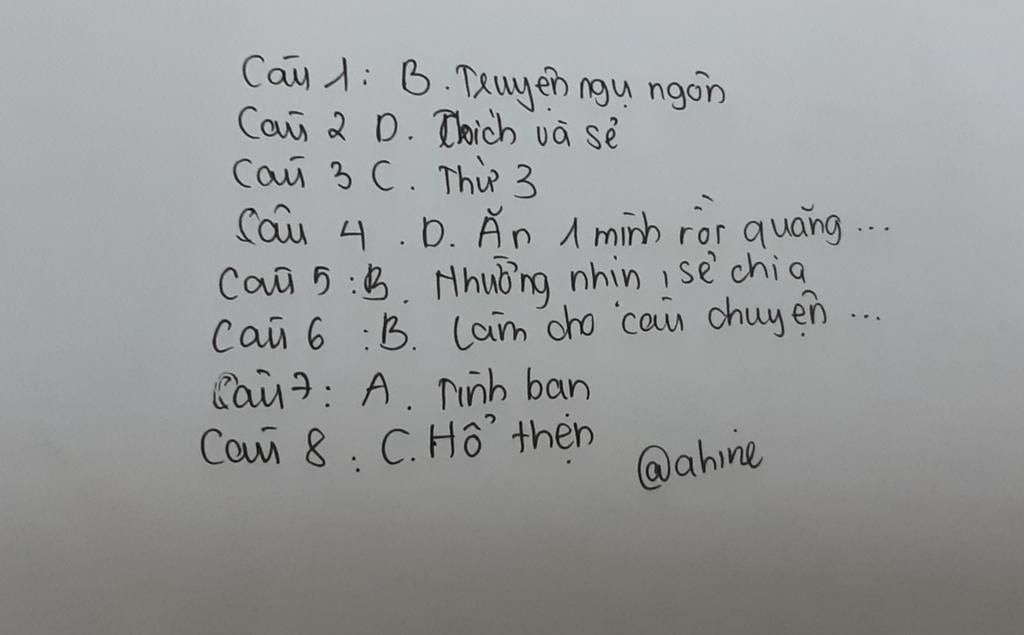 Câu 1: B. Truyện ngụ ngôn
Câu 2 D. Chích và sẻ
Câu 3 C. Thứ 3
Câu 4. D. Ăn 1 mình rồi quẳng...
Câu 5: B. Nhường nhịn, sẻ chia
Câu 6: B. Làm cho câu chuyện...
Câu 7: A. Tình bạn
Câu 8: C. Hổ thẹn
@ahine